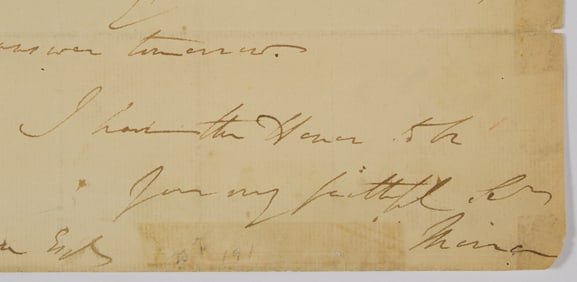 answer tomorrow.
I have the Honor to be
your very faithful Ser
Esqr